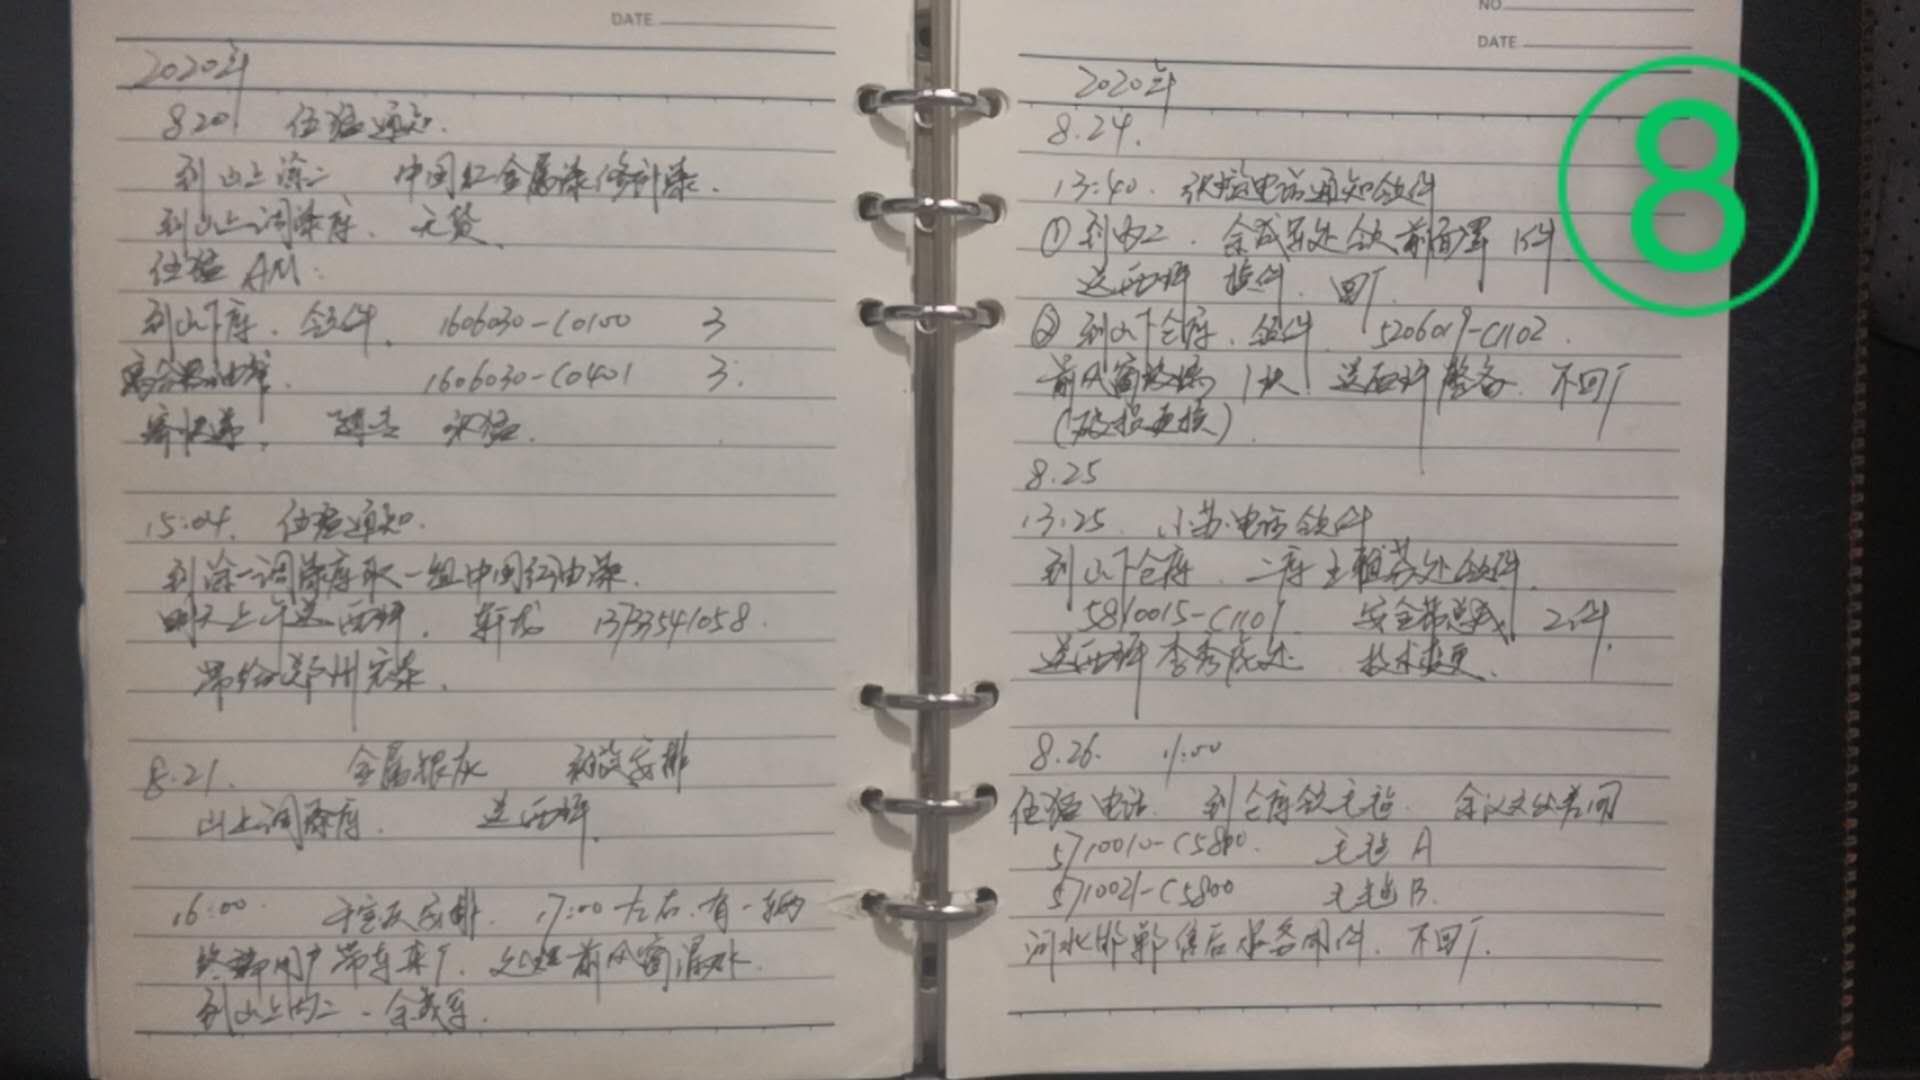 DATE
2020年
8.20 任猛通知.
到山上涂二 中国红金属漆修补漆.
到山上调漆库. 无货
任猛 AM:
到山下库. 领件. 1606030-C0100 3
离合器油管. 1606030-C0401 3.
寄快递.
15:04. 任猛通知.
到涂一调漆库取一组中国红油漆.
明天上午送西坪. 13733541058.
带给郑州
8.21. 金属银灰 安排
山上调漆库. 送西坪.
16:00. 安排. 17:00左右.有一辆
终端用户带车来厂. 处理前风窗漏水.
到山上内二 - 余成军.
NO
DATE
2020年
8.24.
13:40. 张猛电话通知领件
① 到内二. 余成军处领前面罩 1件
送西坪 换件. 回厂.
② 到山下仓库. 领件 5206019-C1102.
前风窗玻璃 1块 送西坪整备. 不回厂
(破损更换)
8.25
13:25. 小苏电话领件
到山下仓库. 二库 处领件.
5810015-C1101 安全带总成 2件.
送西坪李秀成处 技术变更.
8.26. 11:00
任猛电话. 到仓库领毛毡.
5710010-C5800. 毛毡A
5710021-C5800 毛毡B.
河北邯郸售后服务用件. 不回厂.
8